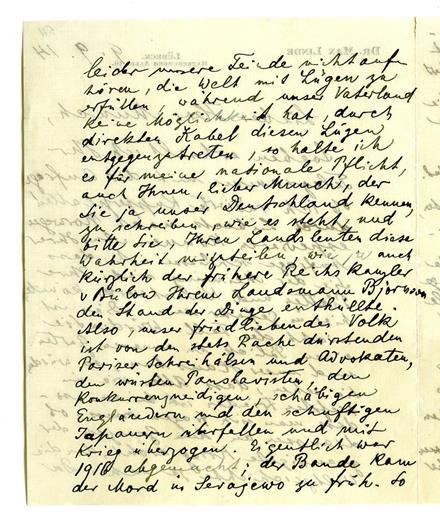 leider unsere Feinde nicht aufhören, die Welt mit Lügen zu
erfüllen, während unser Vaterland
keine Möglichkeit hat, durch
direkten Kabel diesen Lügen
entgegenzutreten, so halte ich
es für meine nationale Pflicht,
auch Ihnen, lieber Munch, der
Sie ja unser Deutschland kennen,
zu schreiben, wie es steht, und
bitte Sie, Ihren Landsleuten diese
Wahrheit mitzuteilen, wie ja auch
kürzlich der frühere Reichskanzler
v Bülow Ihrem Landsmann Björnson
den Stand der Dinge enthüllte.
Also, unser friedliebendes Volk
ist von den stets Rache dürstenden
Pariser Schreihälsen und Advokaten,
den wüsten Panslavisten, den
Konkurrenzneidigen, schäbigen
Engländern und den schuftigen
Japanern überfallen und mit
Krieg überzogen. Eigentlich war
1916 abgemacht; der Bande kam
der Mord in Serajewo zu früh. So
DR. MAX LINDE
LÜBECK